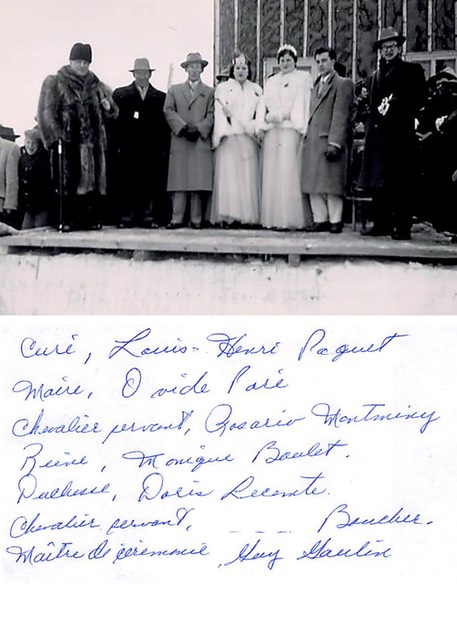 Curé, Louis-Henri Paquet
Maire, Ovide Paré
Chevalier servant, Rosario Montminy
Reine, Monique Boulet.
Duchesse, Doris Lecomte.
Chevalier servant, ---- Boucher.
Maître de cérémonie, Guy Gaulin